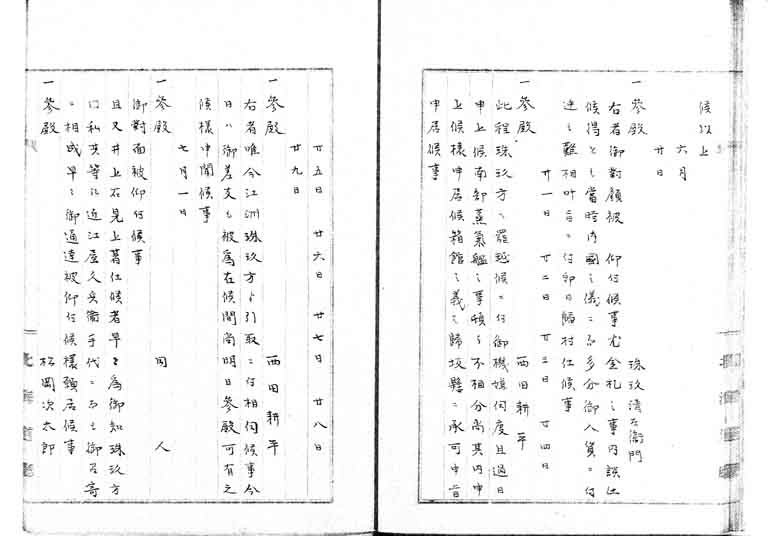 候以上
六月
廿日
一 參殿 珠玖清左衛門
右者御對顔被 仰付候事尤金札之事内談仕
候得とも當時内國之儀ニ而多分御入費ニ付
連も難相叶旨ニ付即日歸村仕候事
廿一日 廿二日 廿三日 廿四日
一 參殿 西田耕平
此程珠玖方へ罷越候ニ付御機嫌伺度且過日
申上候南部蒸氣艦之事頓と不相分尚其内申
上候樣申居候箱館之義も歸坂懸ニ承可申旨
申居候事
廿五日 廿六日 廿七日 廿八日
廿九日
一 參殿 西田耕平
右者唯今江洲珠玖方ゟ引取ニ付相伺候事今
日ハ御差支も被為在候間尚明日參殿可有之
候樣申聞候事
七月一日
一 參殿 同人
御對面被仰付候事
且又井上石見上著仕候者早々為御知珠玖方
江私共等も近江屋久兵衛手代ニ而も御召寄
ニ相成早々御通達被仰付候樣頼居候事
一 參殿 松岡次太郎